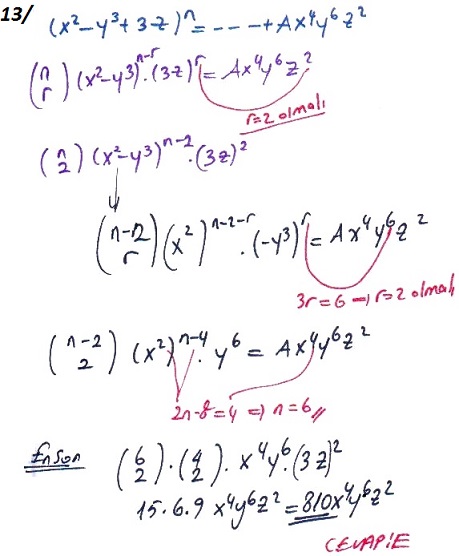 13/ (x²-y³+3z)ⁿ = ---- + Ax⁴y⁶z²
(n r) (x²-y³)ⁿ⁻ʳ.(3z)ʳ = Ax⁴y⁶z²
r=2 olmalı
(n 2) (x²-y³)ⁿ⁻².(3z)²
(n-2 r) (x²)ⁿ⁻²⁻ʳ.(-y³)ʳ = Ax⁴y⁶z²
3r=6 ⇒ r=2 olmalı
(n-2 2) (x²)ⁿ⁻⁴. y⁶ = Ax⁴y⁶z²
2n-8=4 ⇒ n=6 //
En son (6 2).(4 2). x⁴y⁶.(3z)²
15.6.9 x⁴y⁶z² = 810x⁴y⁶z²
CEVAP E